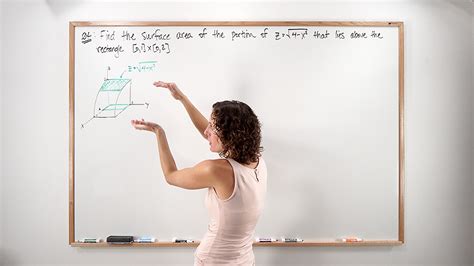 Find the surface area of the portion of z=√4-x² that lies above the
rectangle [0,1]×[0,2].
z=√4-x²
y
x